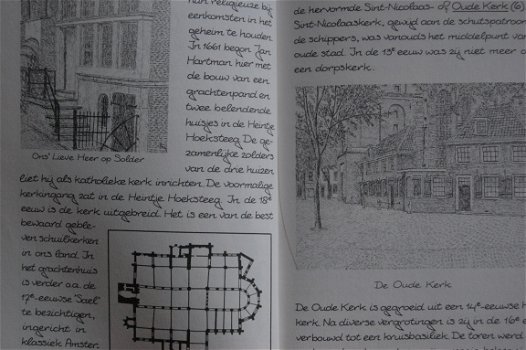 han religieuze bij
eenkomsten in het
geheim te houden.
In 1661 begon Jan
Hartman hier met
de bouw van een
grachtenpand en
twee belendende
huisjes in de Heintje
Hoeksteeg. De ge-
zamenlijke zolders
van de drie huizen
Ons' Lieve Heer op Solder
liet hij als katholieke kerk inrichten. De voormalige
kerkingang zat in de Heintje Hoeksteeg. In de 18e
eeuw is de kerk uitgebreid. Het is een van de best
bewaard geble-
ven schuilkerken
in ons land. In
het grachtenhuis
is verder o.a. de
17e-eeuwse 'Sael'
te bezichtigen,
ingericht in
klassiek Amster
de hervormde Sint-Nicolaas- of Oude Kerk (6)
Sint-Nicolaaskerk, gewijd aan de schutspatroon
de schippers, was vanouds het middelpunt van
oude stad. In de 13e eeuw was zij niet meer d
een dorpskerk.
De Oude Kerk
De Oude Kerk is gegroeid uit een 14e-eeuwse h
kerk. Na diverse vergrotingen is zij in de 16e e
verbouwd tot een kruisbasiliek. De toren werd